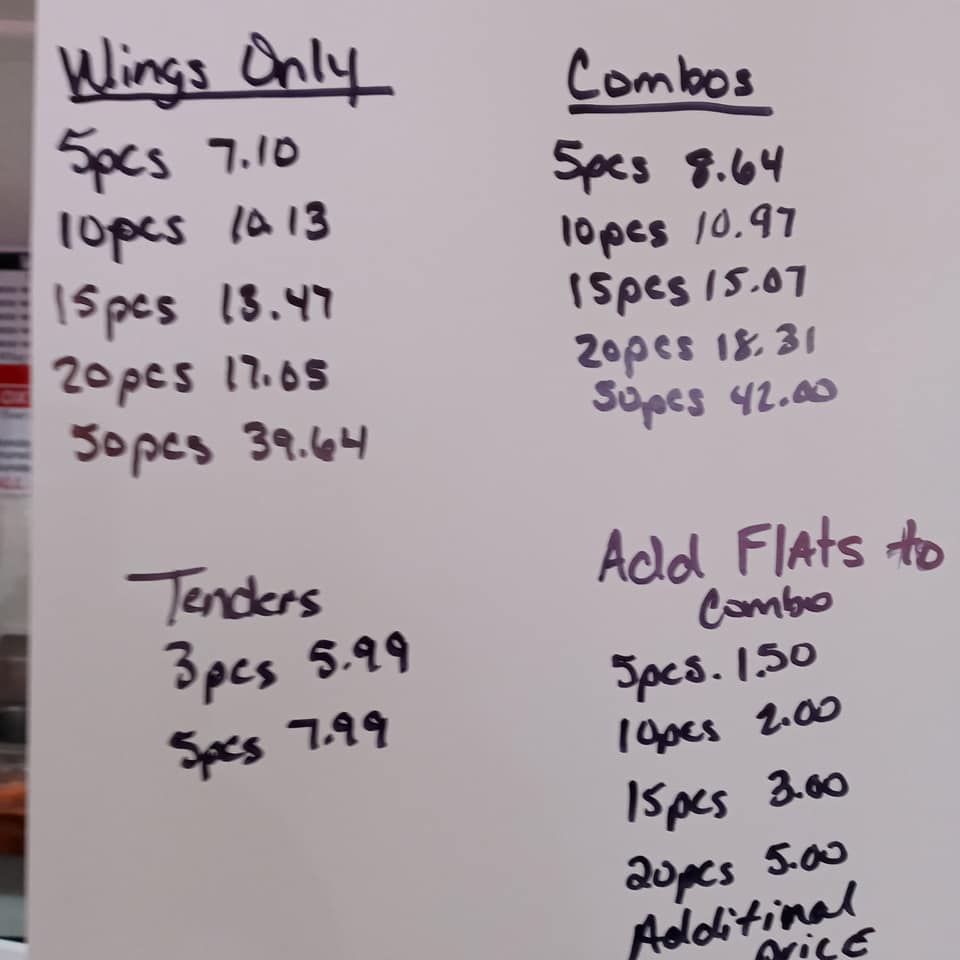 Wings Only
5pcs 7.10
10pcs 10.13
15pcs 13.47
20pcs 17.05
50pcs 39.64
Combos
5pcs 8.64
10pcs 10.97
15pcs 15.07
20pcs 18.31
50pcs 42.00
Tenders
3pcs 5.99
5pcs 7.99
Add Flats to
Combo
5pcs. 1.50
10pcs 2.00
15pcs 3.00
20pcs 5.00
Additinal
price